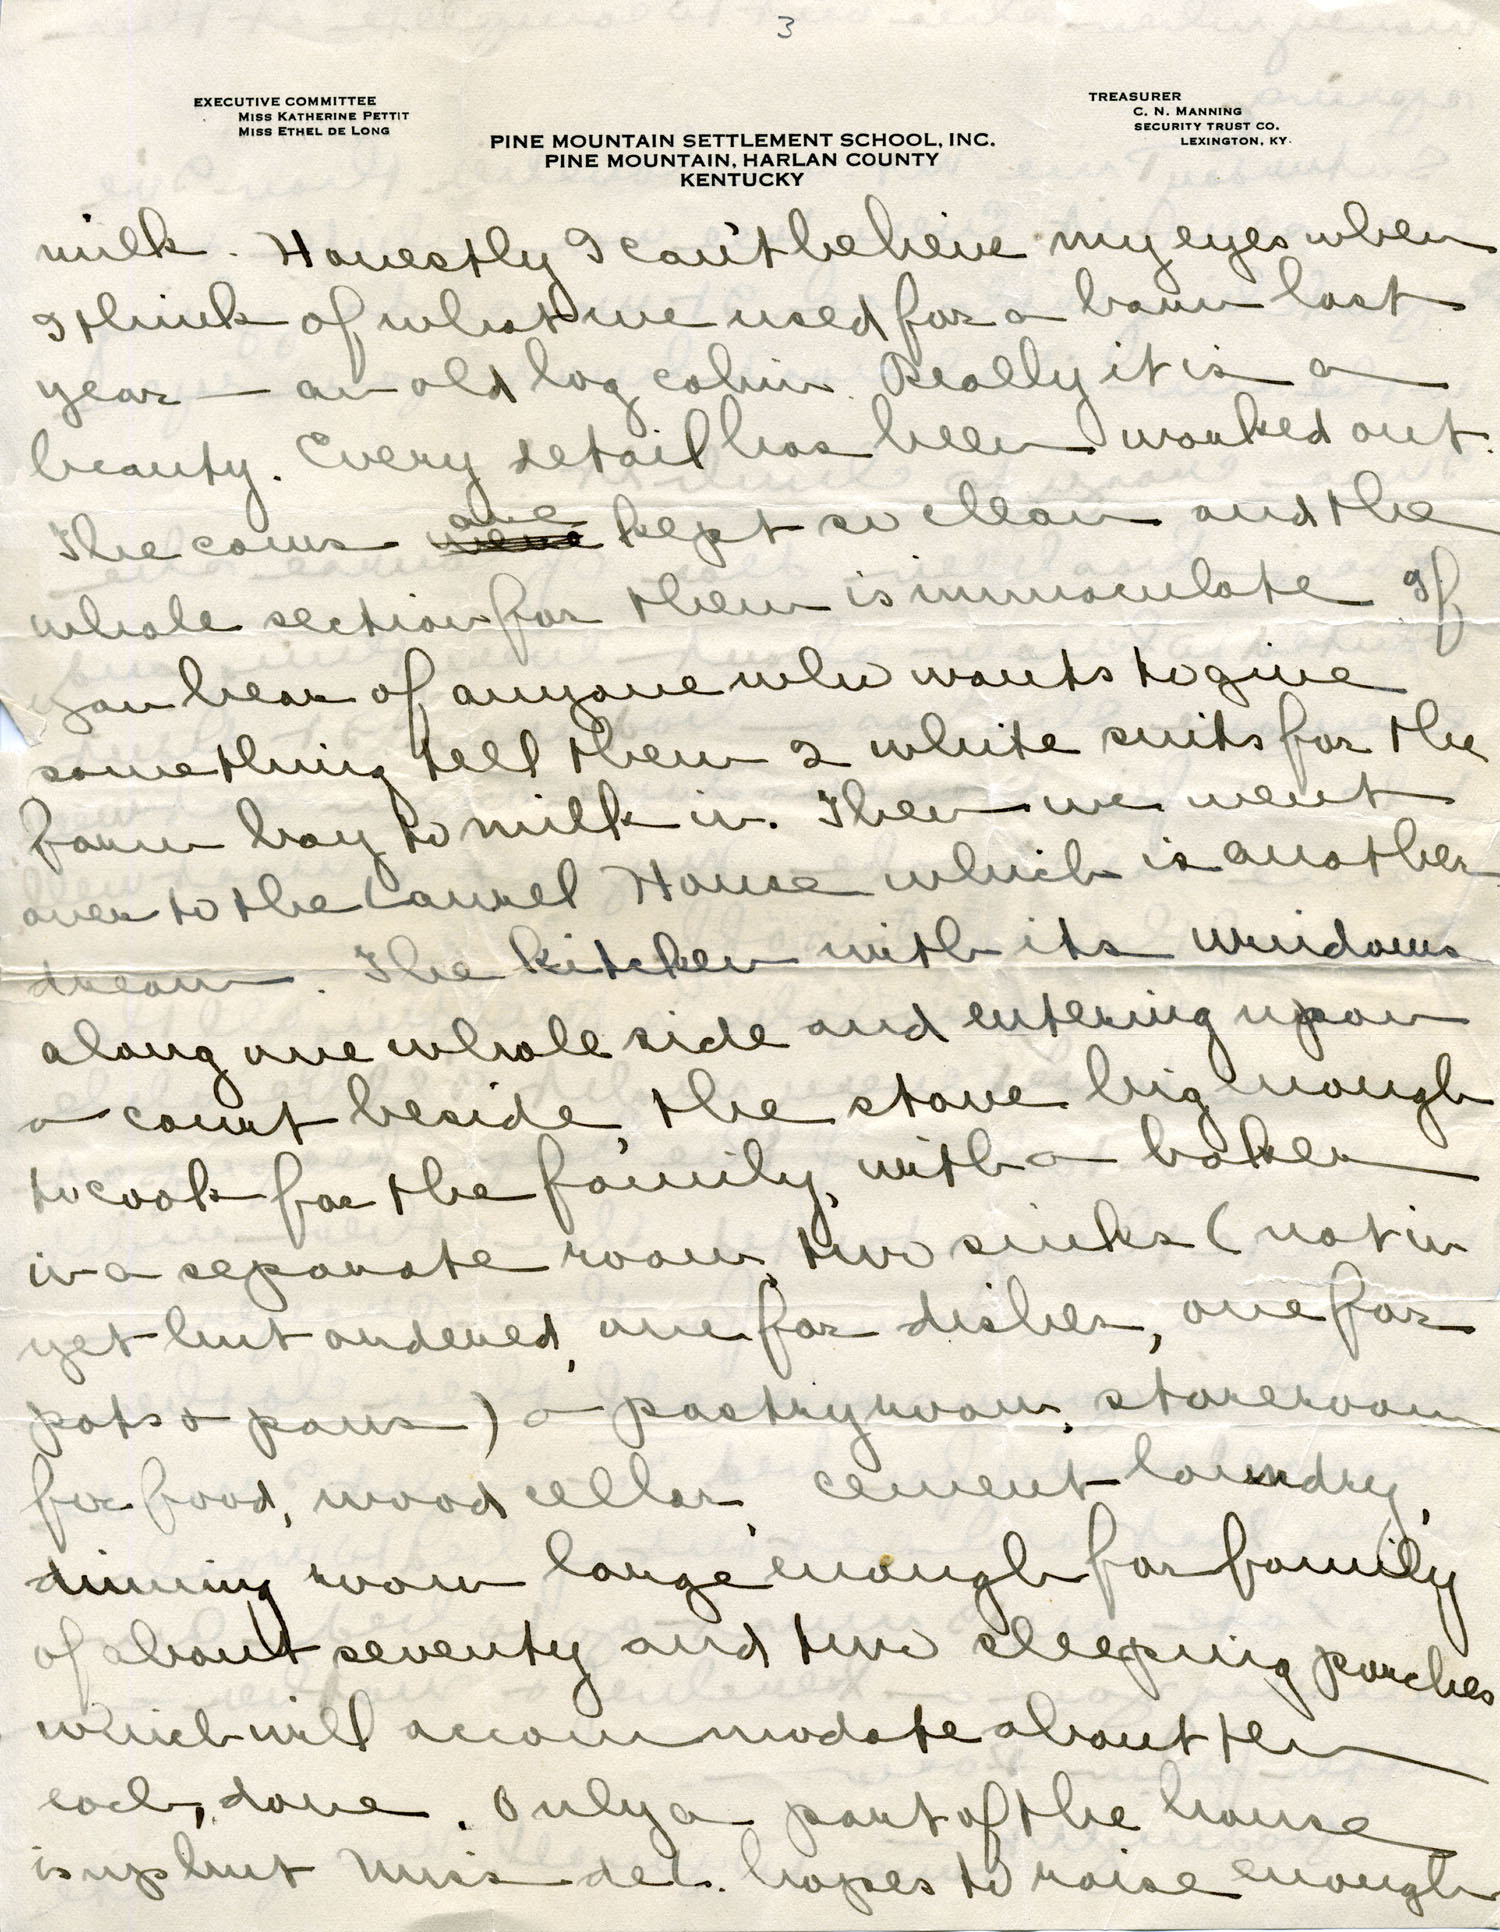 3
EXECUTIVE COMMITTEE
MISS KATHERINE PETTIT
MISS ETHEL DE LONG
TREASURER
C. N. MANNING
SECURITY TRUST CO.
LEXINGTON, KY.
PINE MOUNTAIN SETTLEMENT SCHOOL, INC.
PINE MOUNTAIN, HARLAN COUNTY
KENTUCKY
milk. Honestly I can't believe my eyes when
I think of what we used for a barn last
year — an old log cabin. Really it is a
beauty. Every detail has been worked out.
The cows ~~were~~ are kept so clean and the
whole section for them is immaculate. If
you hear of anyone who wants to give
something tell them 2 white suits for the
farm boy to milk in. Then we went
over to the Laurel House which is another
dream. The kitchen with its windows
along one whole side and entering upon
a court beside, the stove big enough
to cook for the family, with a baker
in a separate room, two sinks (not in
yet but ordered, one for dishes, one for
pots & pans) a pastry room, storeroom
for food, wood cellar, cement laundry,
dining room large enough for family
of about seventy and two sleeping porches
which will accommodate about ten
each, done. Only a part of the house
is up but Miss deL. hopes to raise enough